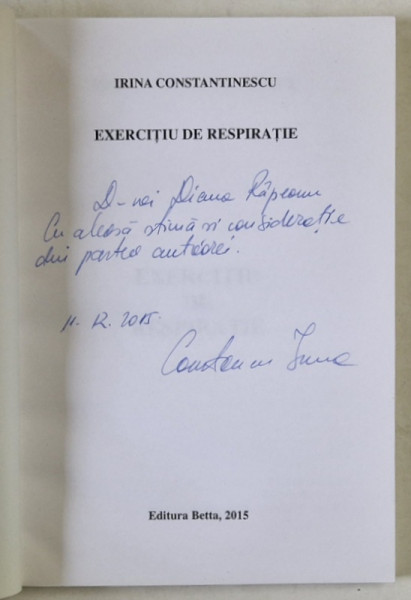 IRINA CONSTANTINESCU
EXERCIȚIU DE RESPIRAȚIE
D-nei Diana Râpeanu
Cu aleasă stimă și considerație
din partea autoarei.
11. 12. 2015.
Constantinescu Irina
Editura Betta, 2015